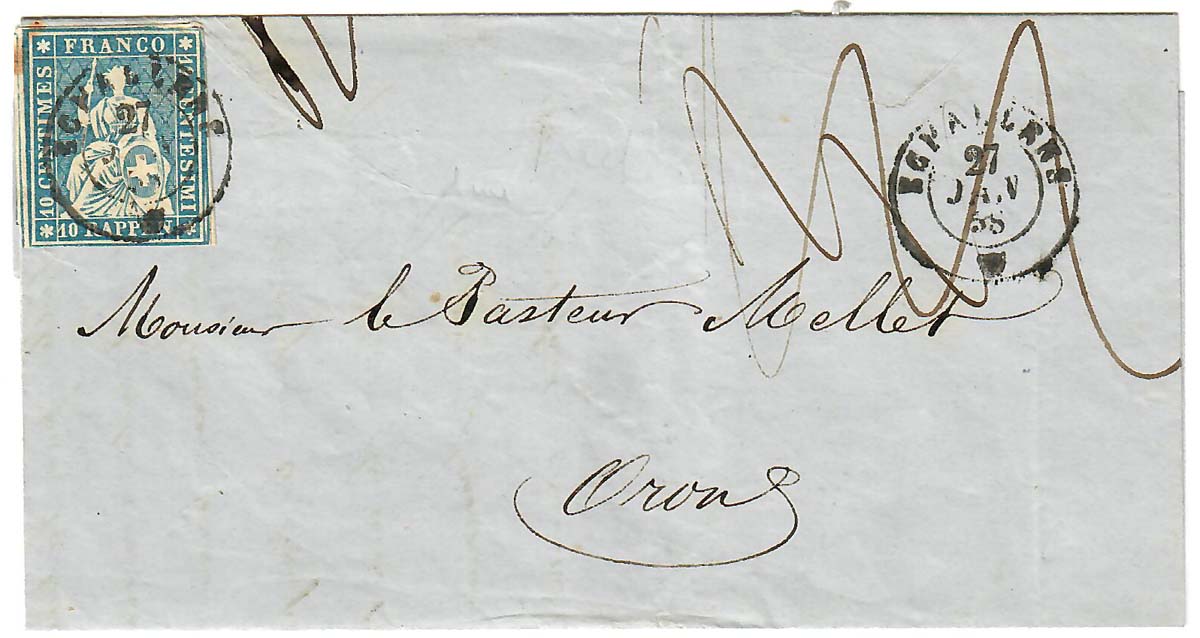 FRANCO
10 CENTIMES
10 CENTESIMI
10 RAPPEN
27
EGHALLENS
27
JANV
58
Monsieur le Pasteur Mellet
Oron